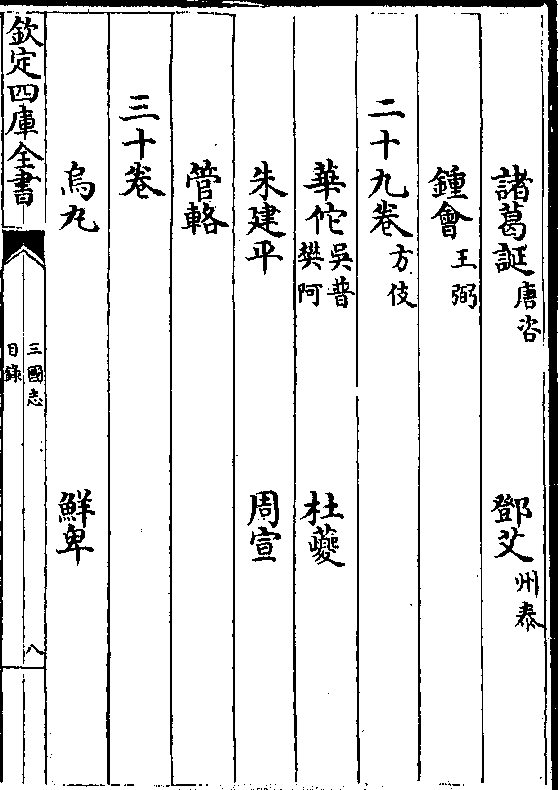 諸葛誕唐咨 鄧艾州泰
鍾會王弼
二十九卷方伎
華佗吳普樊阿 杜夔
朱建平 周宣
管輅
三十卷
烏丸 鮮卑
欽定四庫全書
三國志
目錄
八